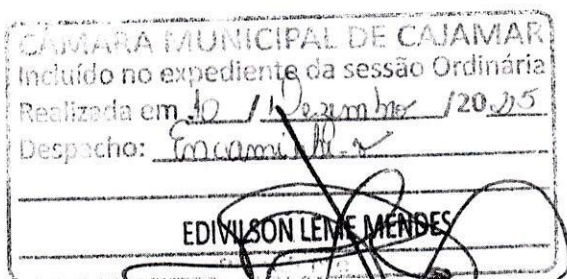 CÂMARA MUNICIPAL DE CAJAMAR
Incluído no expediente da sessão Ordinária
Realizada em 10 / Dezembro /20 25
Despacho: Encaminha-se
EDIVILSON LEME MENDES